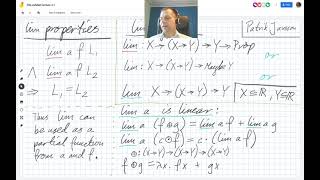 lim properties
lim a f L₁
∧ lim a f L₂
⇒ L₁ = L₂
Thus lim can
be used as a
partial function
from a and f.
Patrik Jansson
lim: X → (X→Y) → Y → Prop
or
lim: X → (X→Y) → Maybe Y
or
lim X → (X→Y) → Y X⊆ℝ, Y⊆ℝ
lim a is linear:
lim a (f⊕g) = lim a f + lim a g
lim a (c⊙f) = c·(lim a f)
⊕: (X→Y) → (X→Y) → (X→Y)
f⊕g = λx. f x + g x